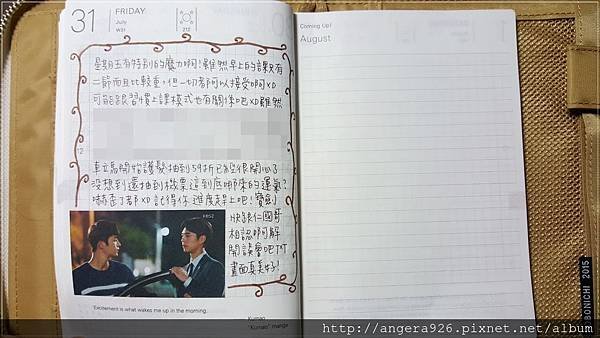 31 FRIDAY
July
W31
212
星期五有特別的魔力啊!雖然早上的課又有
二節而且比較重,但一切都可以接受啊XD
可能跟習慣上課模式也有關係吧XD雖然
12
開始護髮抽到59折已經很開心了
沒想到還抽到機票這到底哪來的運氣?
嚇歪了都XD 記得你進度是早上吧!
快跟仁國哥
相認啊可解
開誤會吧TT
畫面真美好!
KBS2
Excitement is what wakes me up in the morning.
Kuman
"Kuman" manga
Coming Up!
August
BONICHI 2015
http://angera926.pixnet.net/album